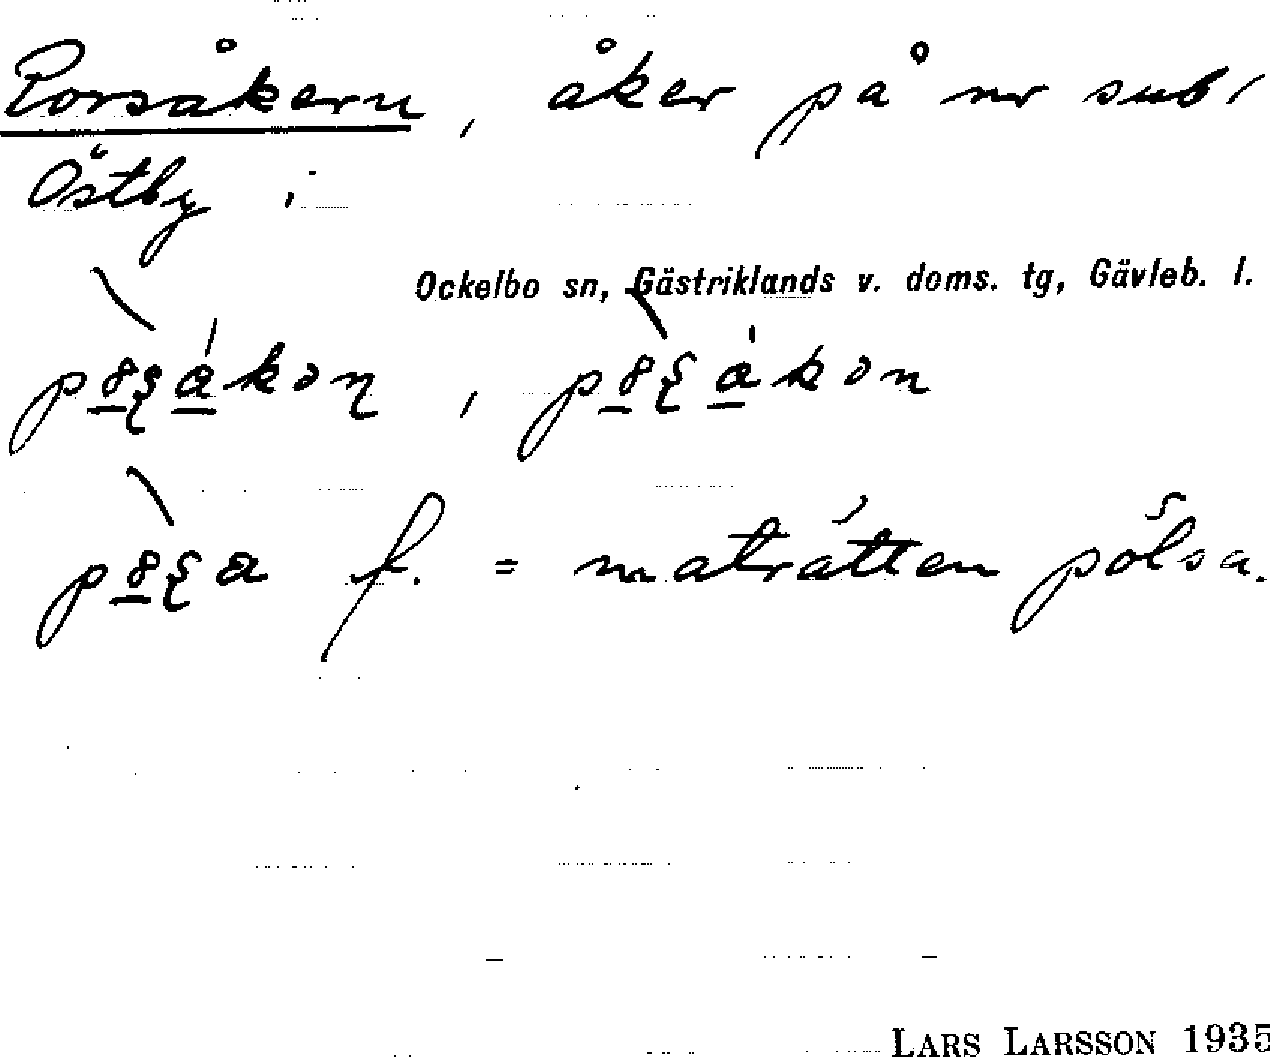 Porsåkern, åker på nr sub 1
Östby i
Ockelbo sn, Gästriklands v. doms. tg, Gävleb. l.
f. = maträtten pölsa.
LARS LARSSON 1935